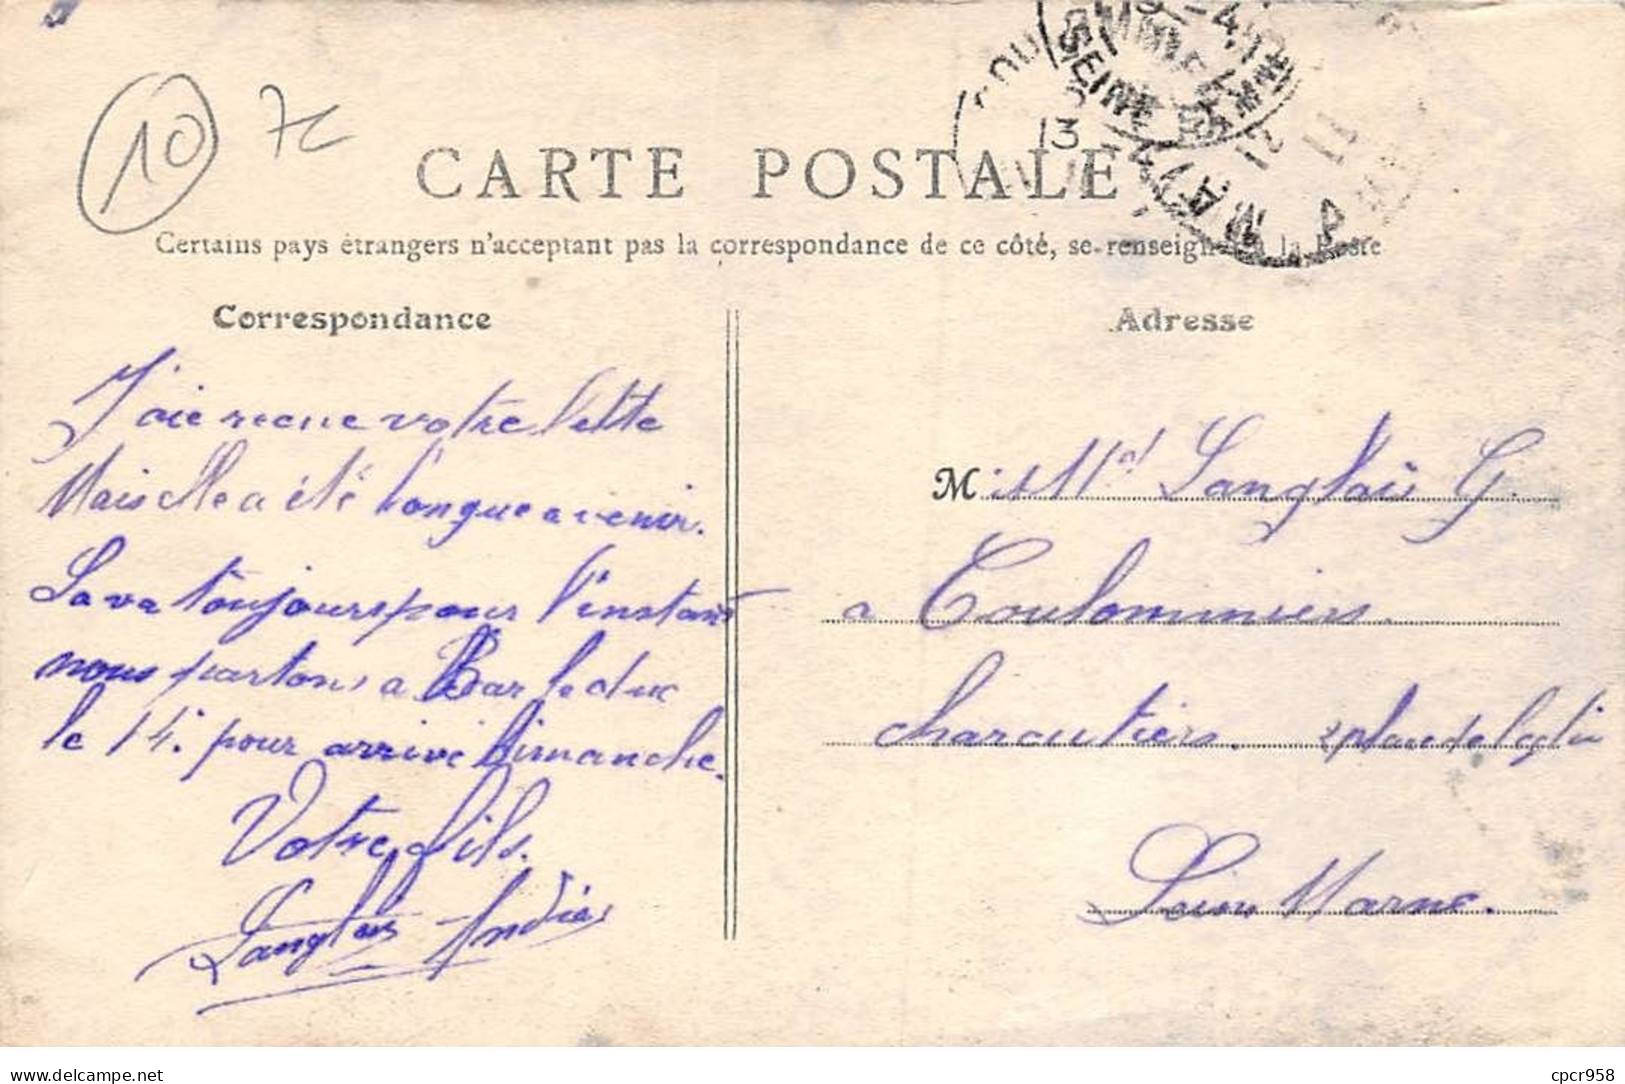 10 7c
CARTE POSTALE
Certains pays étrangers n'acceptant pas la correspondance de ce côté, se renseigner à la Poste
SEINE
13
Correspondance
J'aie recue votre lette
Mais elle a été longue a venir.
Sa va toujours pour l'instant
nous partons a Bar le duc
le 14. pour arrive Dimanche.
Votre fils.
Langlais Andrés
Adresse
M Langlais G.
a Coulommiers.
charcutiers. place de
Seine Marne.
delcampe.net
cpcr958